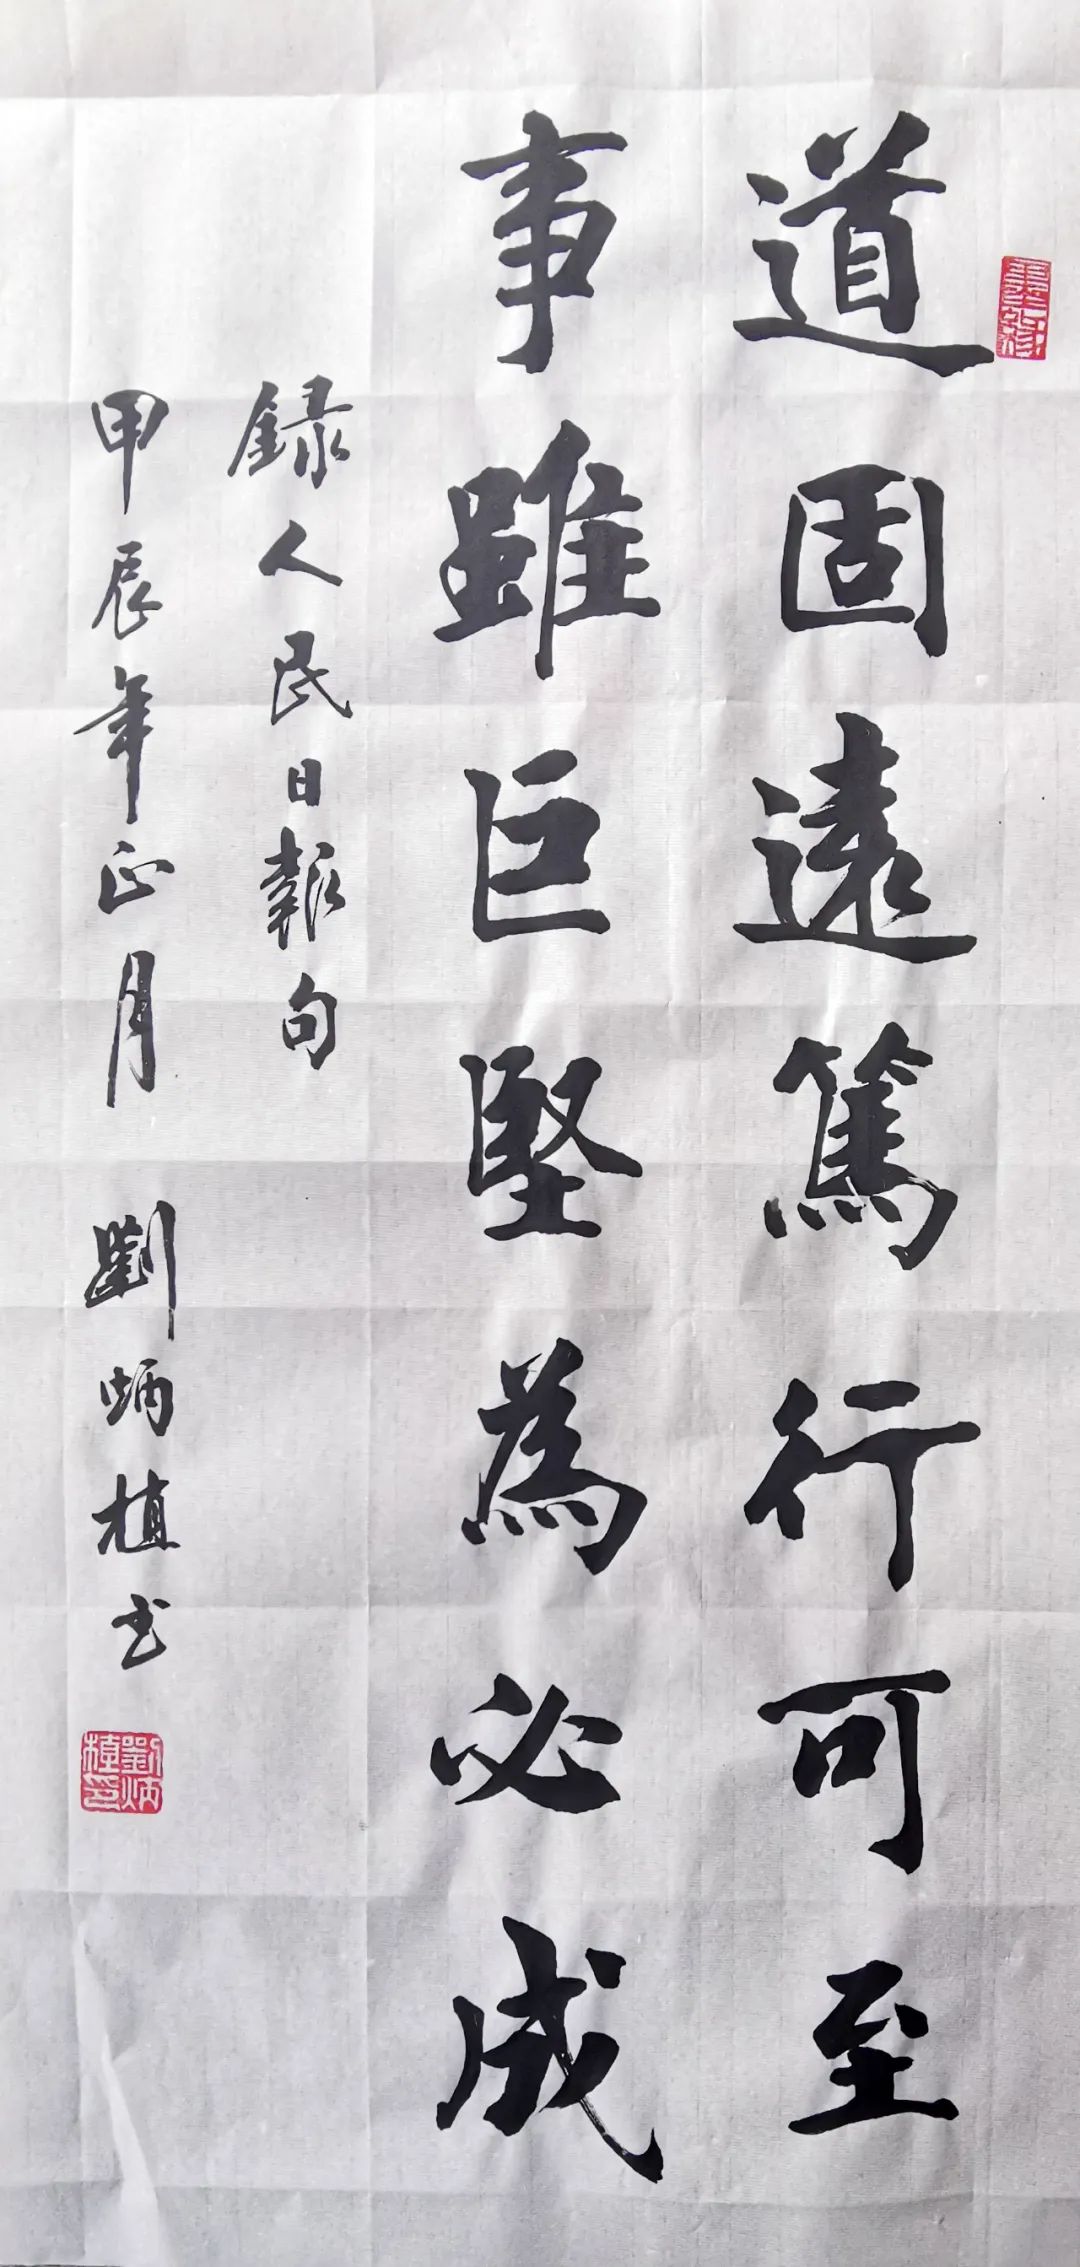 道固遠篤行可至
事雖巨堅為必成
録人民日報句
甲辰年正月 劉炳植书
劉炳植印